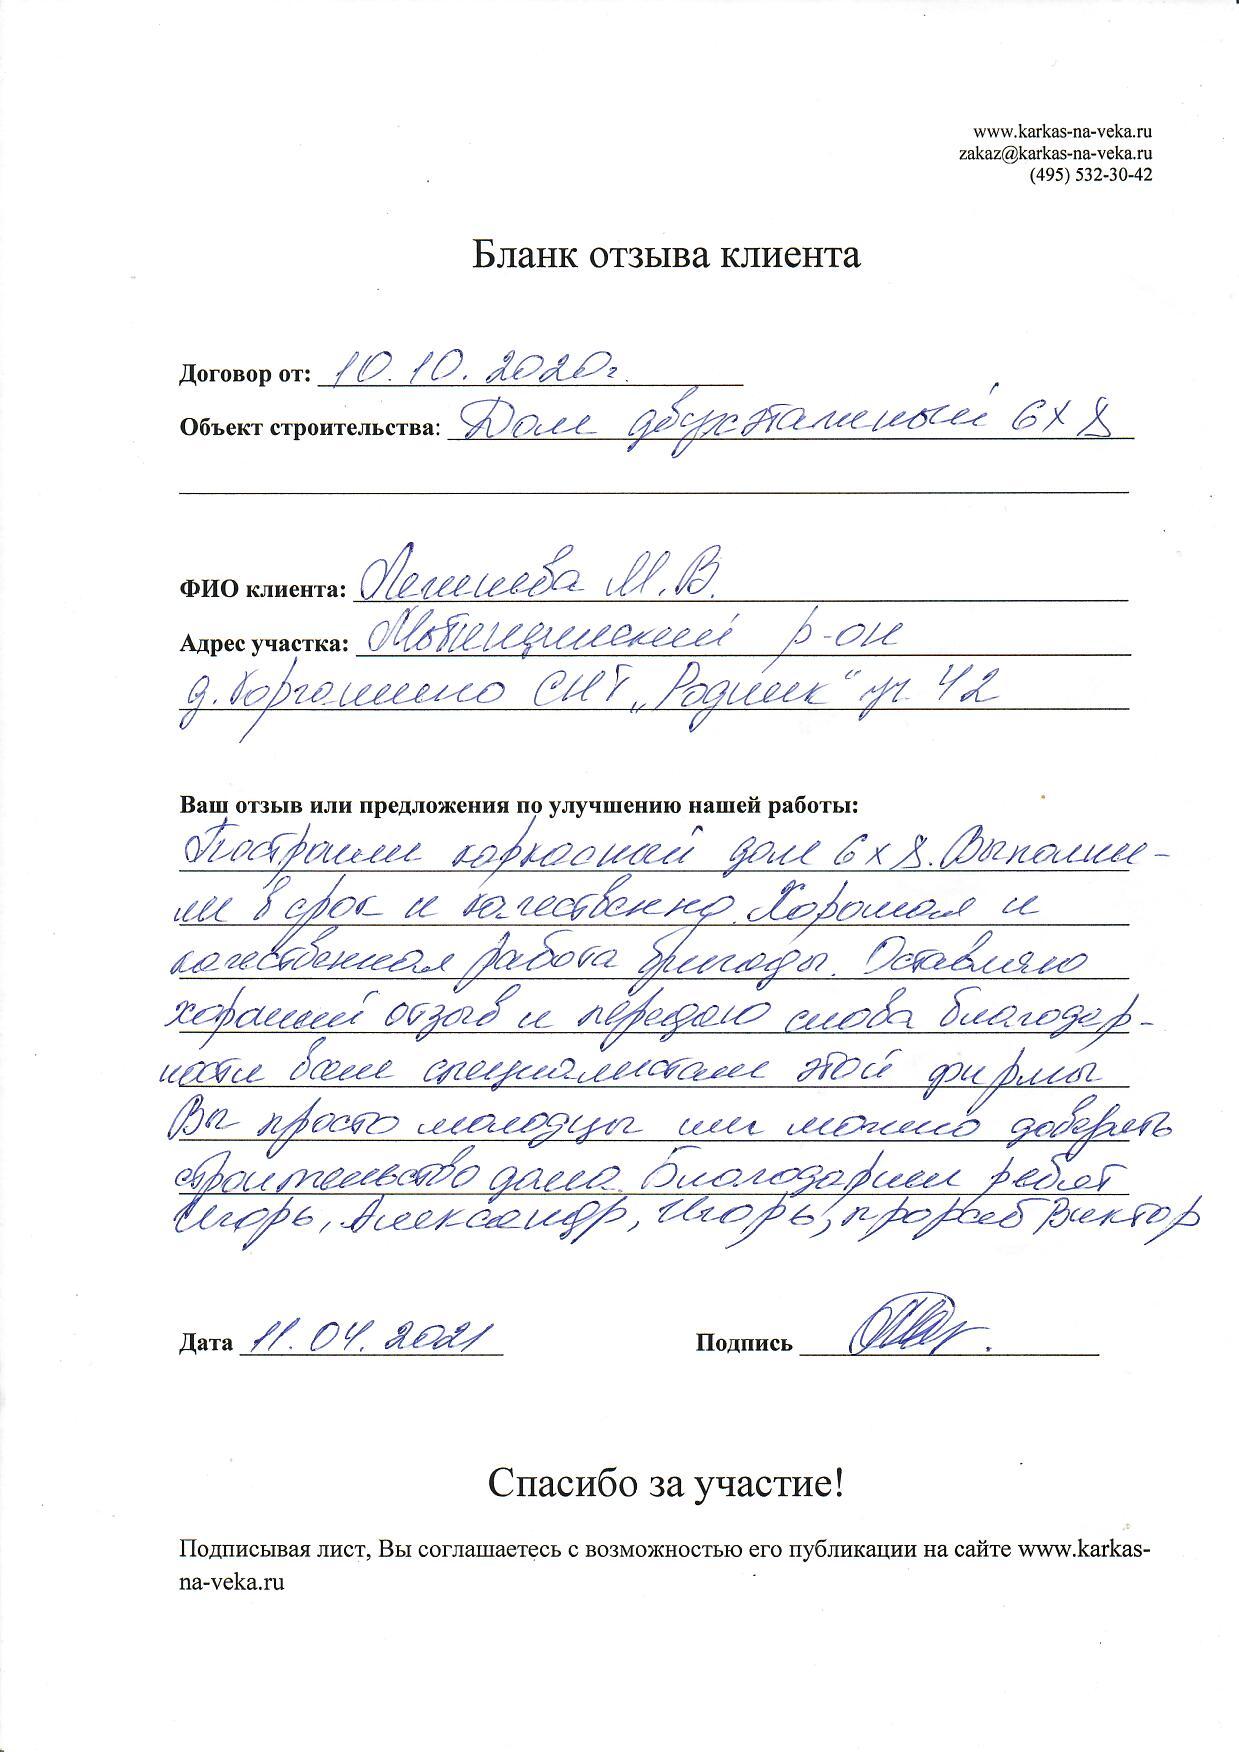 www.karkas-na-veka.ru
zakaz@karkas-na-veka.ru
(495) 532-30-42
Бланк отзыва клиента
Договор от: 10.10.2020г.
Объект строительства: Дом двухэтажный 6х8
ФИО клиента: М.В.
Адрес участка: Мытищинский р-он
д. СНТ „Родник“ уч. 42
Ваш отзыв или предложения по улучшению нашей работы:
Построили каркасный дом 6х8. Выполни-
ли в срок и качественно. Хорошая и
качественная работа бригады. Оставляю
хороший отзыв и передаю слова благодар-
ности всем специалистам этой фирмы
Вы просто молодцы им можно доверять
строительство дома. Благодарим ребят
Игорь, Александр, Игорь, прораб Виктор
Дата 11.04.2021 Подпись
Спасибо за участие!
Подписывая лист, Вы соглашаетесь с возможностью его публикации на сайте www.karkas-
na-veka.ru